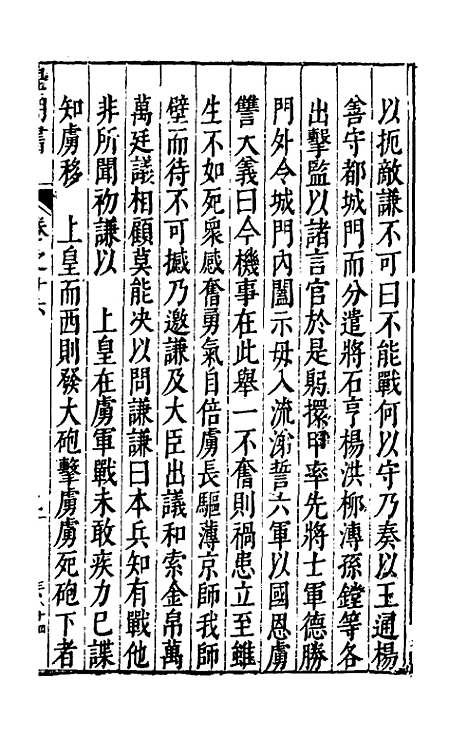 以扼敵謙不可曰不能戰何以守乃奏以王通楊
善守都城門而分遣將石亨楊洪柳溥孫鏜等各
出擊監以諸言官於是躬擐甲率先將士軍德勝
門外令城門內闔示毋入流涕誓六軍以國恩虜
讐大義曰今機事在此舉一不奮則禍患立至雖
生不如死眾感奮勇氣自倍虜長驅薄京師我師
壁而待不可撼乃邀謙及大臣出議和索金帛萬
萬廷議相顧莫能决以問謙謙曰本兵知有戰他
非所聞初謙以　上皇在虜軍戰未敢疾力已諜
知虜移　上皇而西則發大砲擊虜虜死砲下者
皇明書
卷之十六